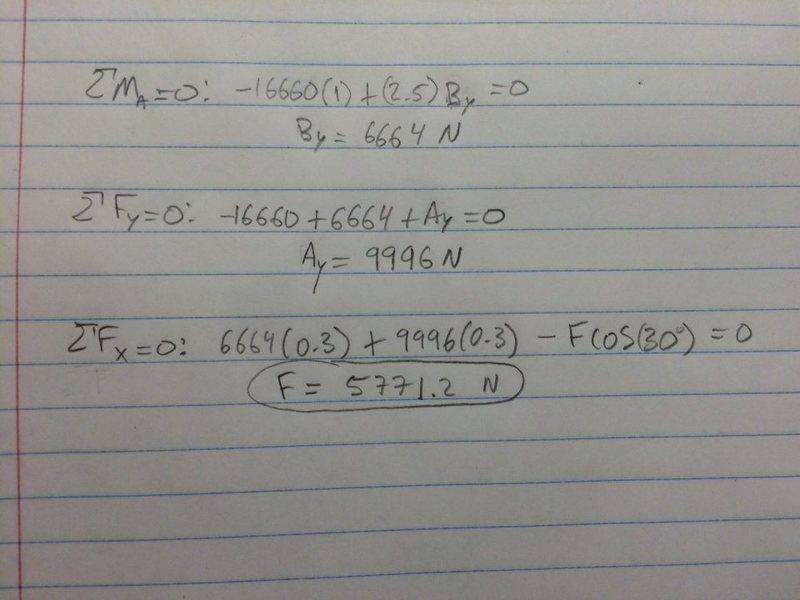 ΣM_A=0: -16660(1)+(2.5)By=0
By= 6664 N
ΣFy=0: -16660+6664+Ay=0
Ay= 9996 N
ΣFx=0: 6664(0.3)+9996(0.3) - Fcos(30°)=0
F= 5771.2 N